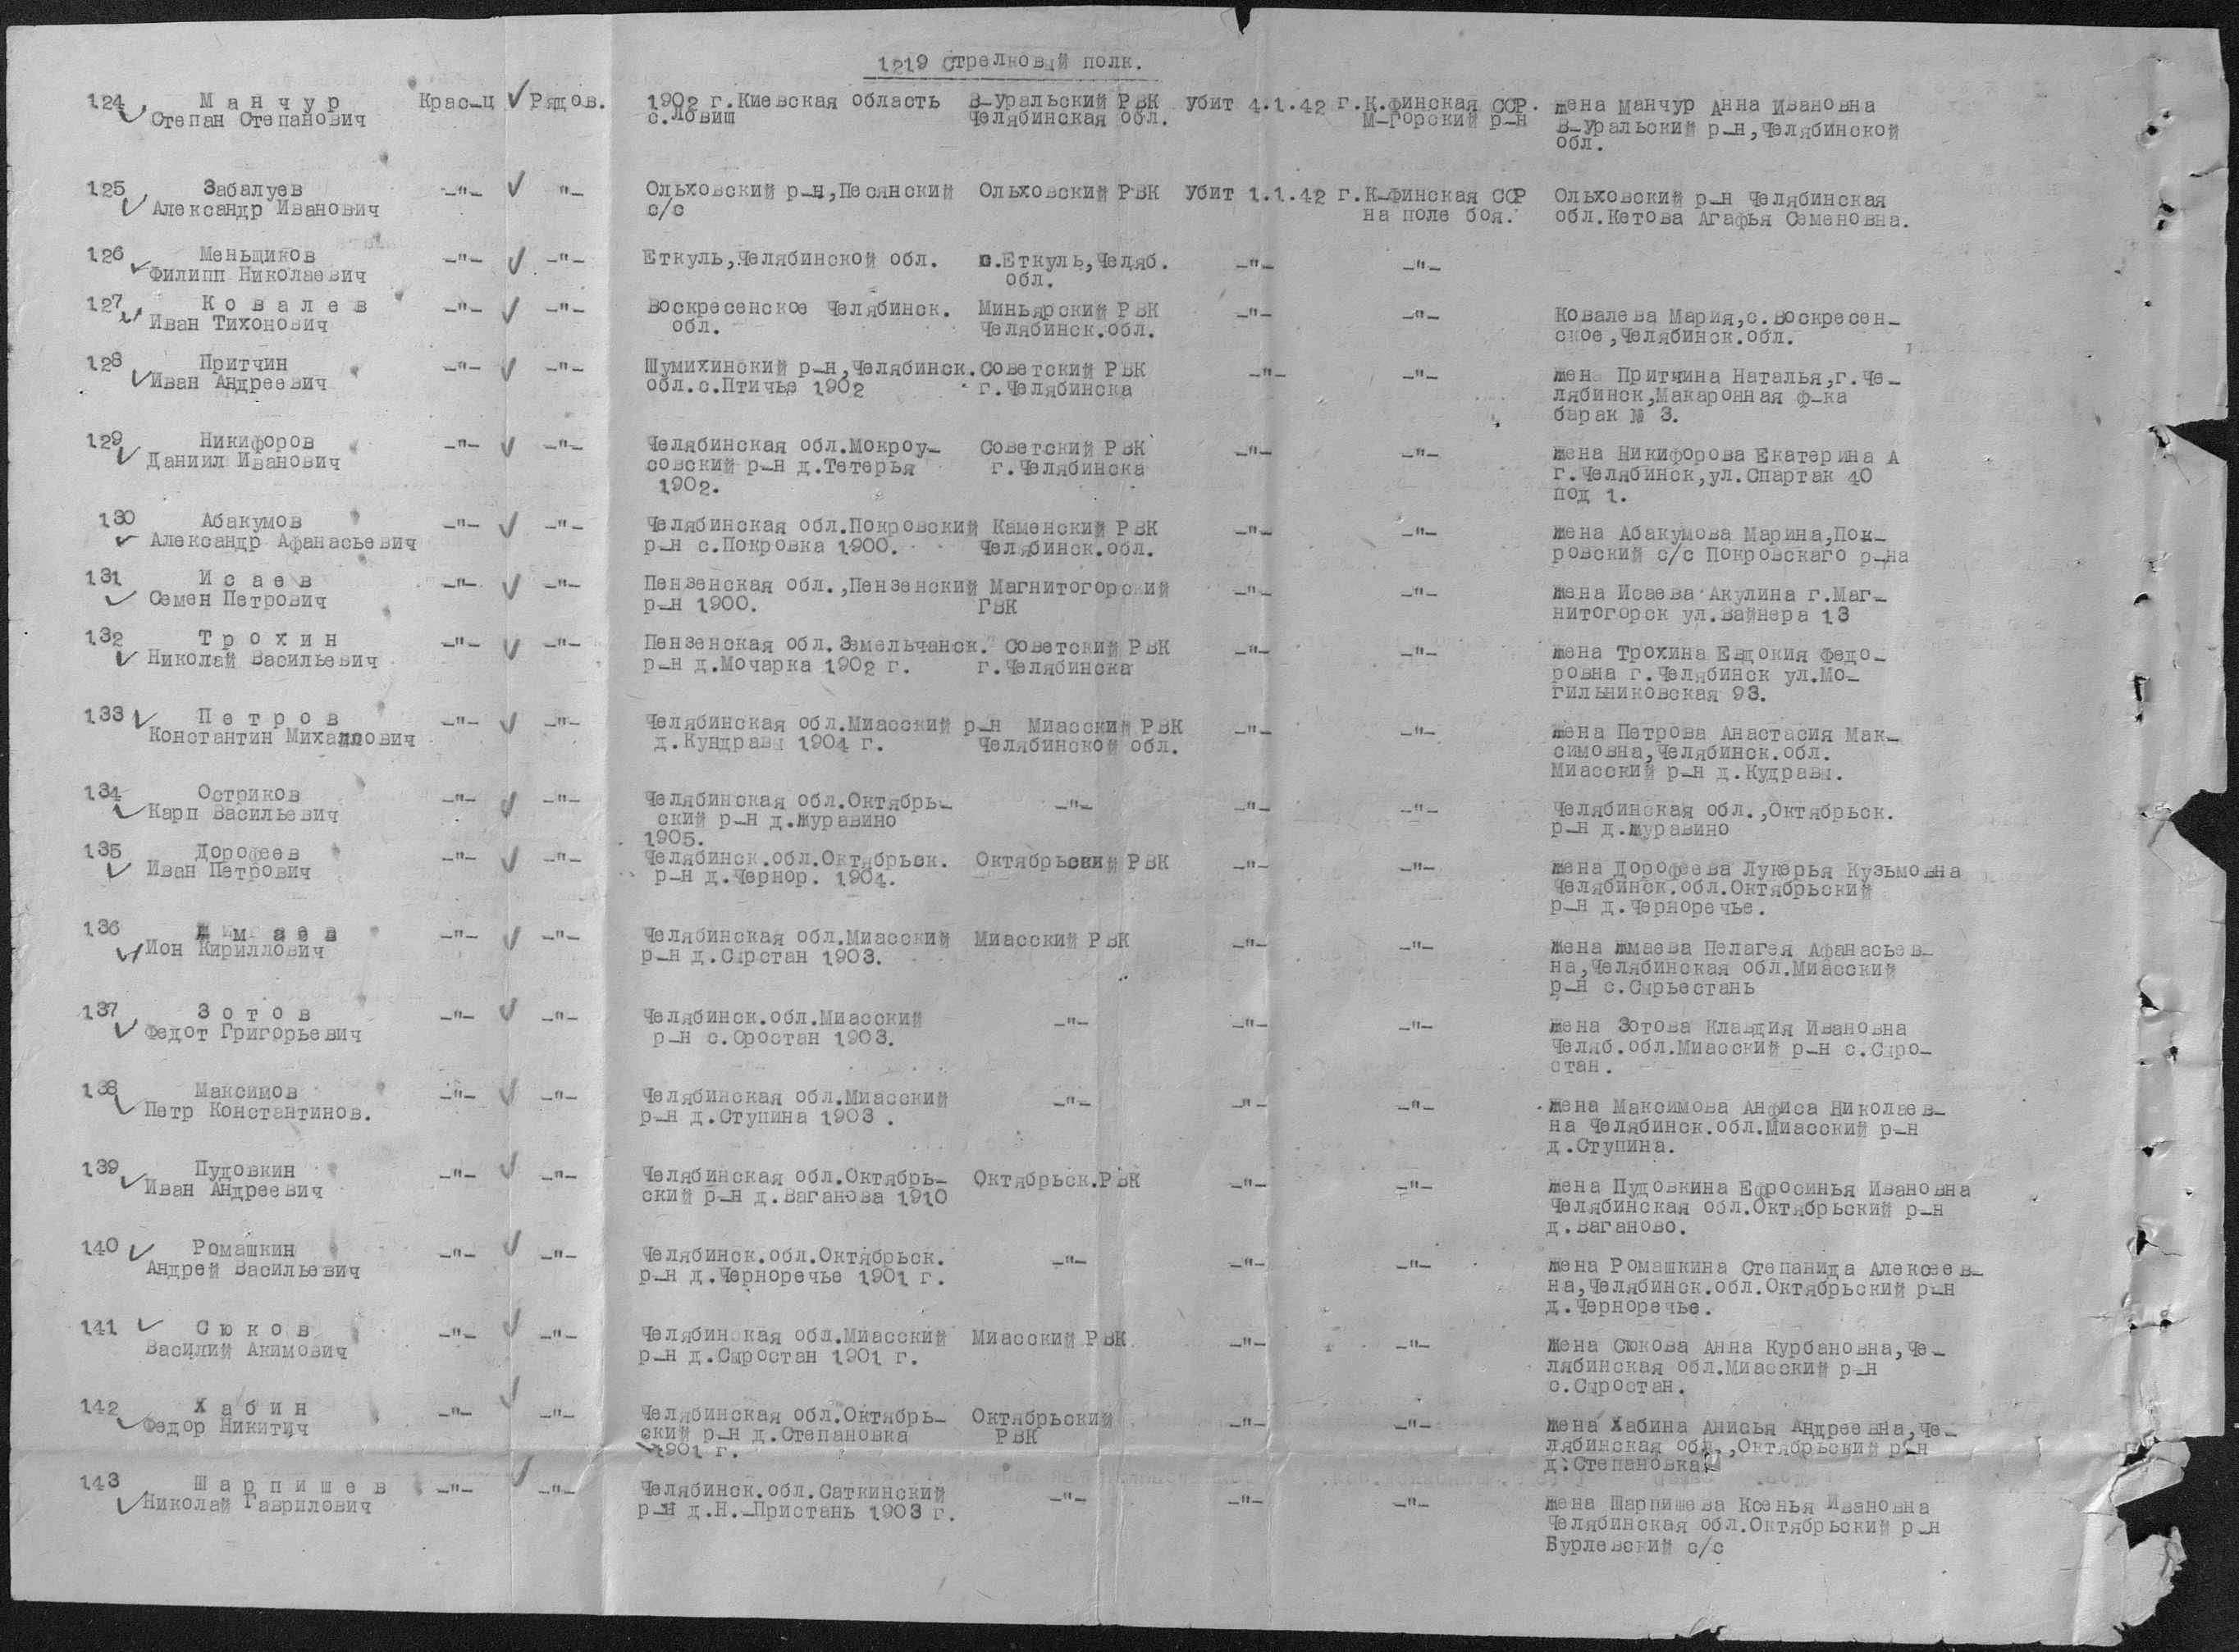 1219 Стрелковый полк.
124. Манчур Крас-ц Рядов. 1902 г.Киевская область В-Уральский РВК Убит 4.1.42 г. К.Финская ССР. Жена Манчур Анна Ивановна
Степан Степанович с.Ловиш Челябинская обл. М-Горский р-н В-Уральский р-н,Челябинской
обл.
125 Забалуев -"- "- Ольховский р-н,Песянский Ольховский РВК Убит 1.1.42 г. К-Финская ССР Ольховский р-н Челябинская
Александр Иванович с/с на поле боя. обл.Кетова Агафья Семеновна.
126 Меньщиков -"- -"- Еткуль,Челябинской обл. с.Еткуль,Челяб. -"- -"-
Филипп Николаевич обл.
127 Ковалев -"- -"- Воскресенское Челябинск. Миньярский РВК -"- -"- Ковалева Мария,с.Воскресен-
Иван Тихонович обл. Челябинск.обл. ское,Челябинск.обл.
128 Притчин -"- -"- Шумихинский р-н,Челябинск. Советский РВК -"- -"- Жена Притчина Наталья,г.Че-
Иван Андреевич обл.с.Птичье 1902 г.Челябинска лябинск,Макаронная ф-ка
барак № 3.
129 Никифоров -"- -"- Челябинская обл.Мокроу- Советский РВК -"- -"- Жена Никифорова Екатерина А
Даниил Иванович совский р-н д.Тетерья г.Челябинска г.Челябинск,ул.Спартак 40
1902. под 1.
130 Абакумов -"- -"- Челябинская обл.Покровский Каменский РВК -"- -"- Жена Абакумова Марина,Пок-
Александр Афанасьевич р-н с.Покровка 1900. Челябинск.обл. ровский с/с Покровскаго р-на
131 Исаев -"- -"- Пензенская обл.,Пензенский Магнитогорский -"- -"- Жена Исаева Акулина г.Маг-
Семен Петрович р-н 1900. ГВК нитогорск ул.Вайнера 13
132 Трохин -"- -"- Пензенская обл.Земельчанск. Советский РВК -"- -"- Жена Трохина Евдокия Федо-
Николай Васильевич р-н д.Мочарка 1902 г. г.Челябинска ровна г.Челябинск ул.Мо-
гильниковская 93.
133 Петров -"- -"- Челябинская обл.Миасский р-н Миасский РВК -"- -"- Жена Петрова Анастасия Мак-
Константин Михайлович д.Кундравы 1904 г. Челябинской обл. симовна,Челябинск.обл.
Миасский р-н д.Кудравы.
134 Остриков -"- -"- Челябинская обл.Октябрь- -"- -"- -"- Челябинская обл.,Октябрьск.
Карп Васильевич ский р-н д.Журавино р-н д.Журавино
1905.
135 Дорофеев -"- -"- Челябинск.обл.Октябрьск. Октябрьский РВК -"- -"- Жена Дорофеева Лукерья Кузьмовна
Иван Петрович р-н д.Чернор. 1904. Челябинск.обл.Октябрьский
р-н д.Черноречье.
136 Жмаев -"- -"- Челябинская обл.Миасский Миасский РВК -"- -"- Жена Жмаева Пелагея Афанасьев-
Ион Кириллович р-н д.Сырстан 1903. на,Челябинская обл.Миасский
р-н с.Сырьестань
137 Зотов -"- -"- Челябинск.обл.Миасский -"- -"- -"- Жена Зотова Клавдия Ивановна
Федот Григорьевич р-н с.Сростан 1903. Челяб.обл.Миасский р-н с.Сыро-
стан.
138 Максимов -"- -"- Челябинская обл.Миасский -"- -"- -"- Жена Максимова Анфиса Николаев-
Петр Константинов. р-н д.Ступина 1903 . на Челябинск.обл.Миасский р-н
д.Ступина.
139 Пудовкин -"- -"- Челябинская обл.Октябрь- Октябрьск.РВК -"- -"- Жена Пудовкина Ефросинья Ивановна
Иван Андреевич ский р-н д.Ваганова 1910 Челябинская обл.Октябрьский р-н
д.Ваганово.
140 Ромашкин -"- -"- Челябинск.обл.Октябрьск. -"- -"- -"- Жена Ромашкина Степанида Алексеев-
Андрей Васильевич р-н д.Черноречье 1901 г. на,Челябинск.обл.Октябрьский р-н
д.Черноречье.
141 Сюков -"- -"- Челябинская обл.Миасский Миасский РВК -"- -"- Жена Сюкова Анна Курбановна,Че-
Василий Акимович р-н д.Сыростан 1901 г. лябинская обл.Миасский р-н
с.Сыростан.
142 Хабин -"- -"- Челябинская обл.Октябрь- Октябрьский -"- -"- Жена Хабина Анисья Андреевна,Че-
Федор Никитич ский р-н д.Степановка РВК лябинская обл.,Октябрьский р-н
1901 г. д.Степановка
143 Шарпишев -"- -"- Челябинск.обл.Саткинский -"- -"- -"- Жена Шарпишева Ксенья Ивановна
Николай Гаврилович р-н д.Н.-Пристань 1903 г. Челябинская обл.Октябрьский р-н
Бурлевский с/с